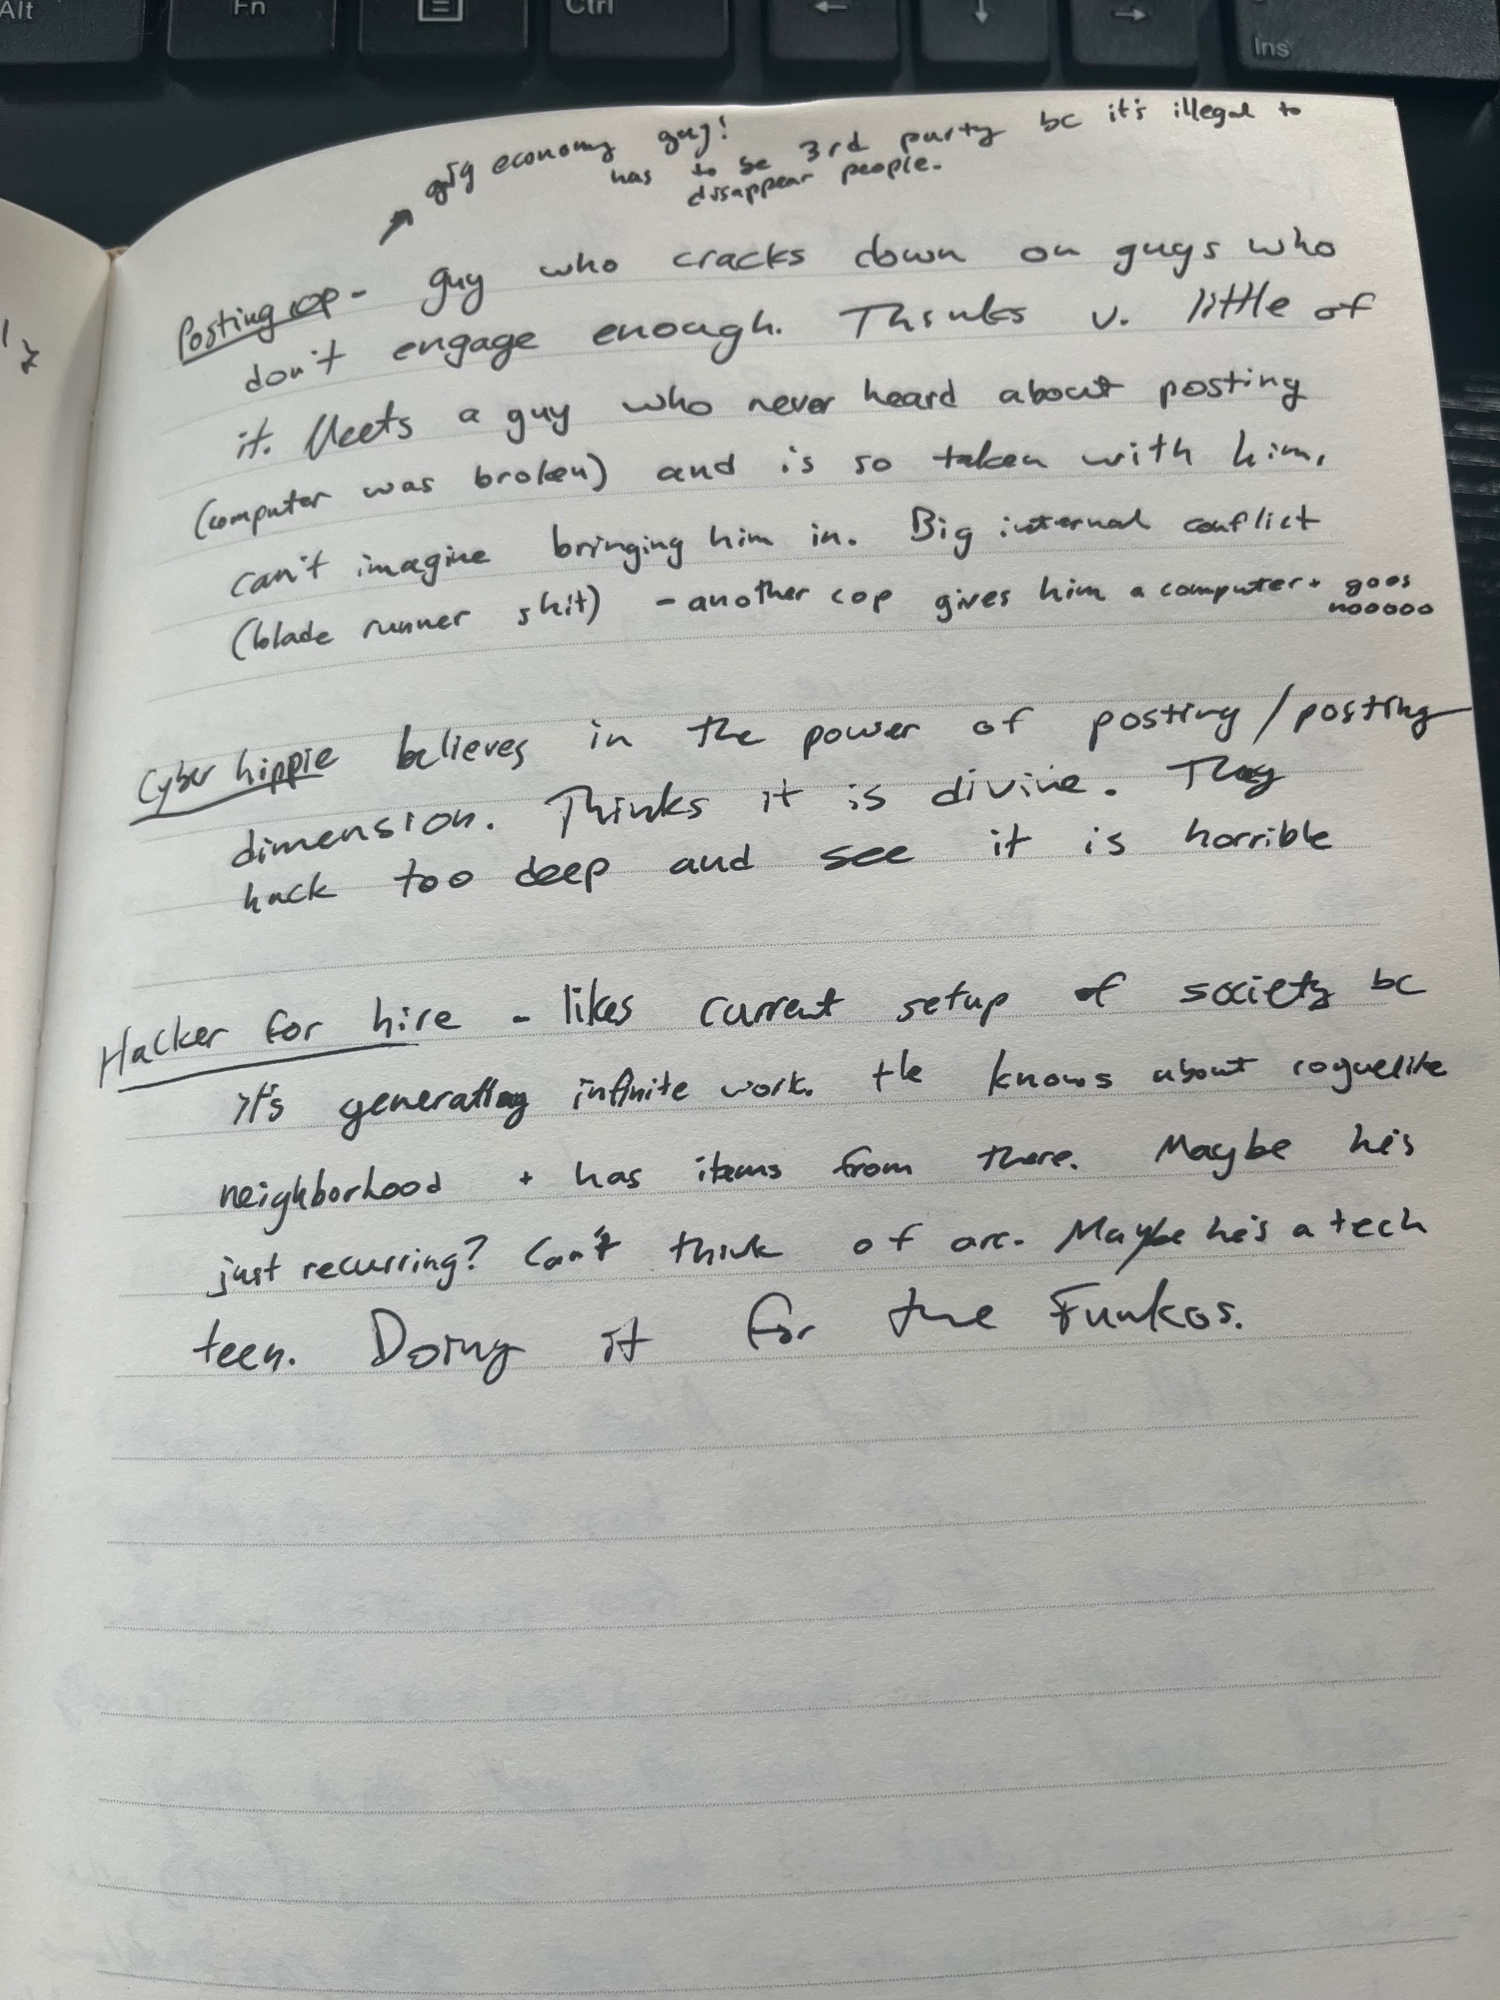 Alt Fn Ctrl ← ↓ → Ins
gig economy guy!
has to be 3rd party bc it's illegal to
disappear people.
Posting cop - guy who cracks down on guys who
don't engage enough. Thinks v. little of
it. Meets a guy who never heard about posting
(computer was broken) and is so taken with him,
can't imagine bringing him in. Big internal conflict
(blade runner shit) - another cop gives him a computer + goes
nooooo
Cyber hippie believes in the power of posting/posting
dimension. Thinks it is divine. They
hack too deep and see it is horrible
Hacker for hire - likes current setup of society bc
it's generating infinite work. He knows about roguelike
neighborhood + has items from there. Maybe he's
just recurring? Can't think of arc. Maybe he's a tech
teen. Doing it for the Funkos.